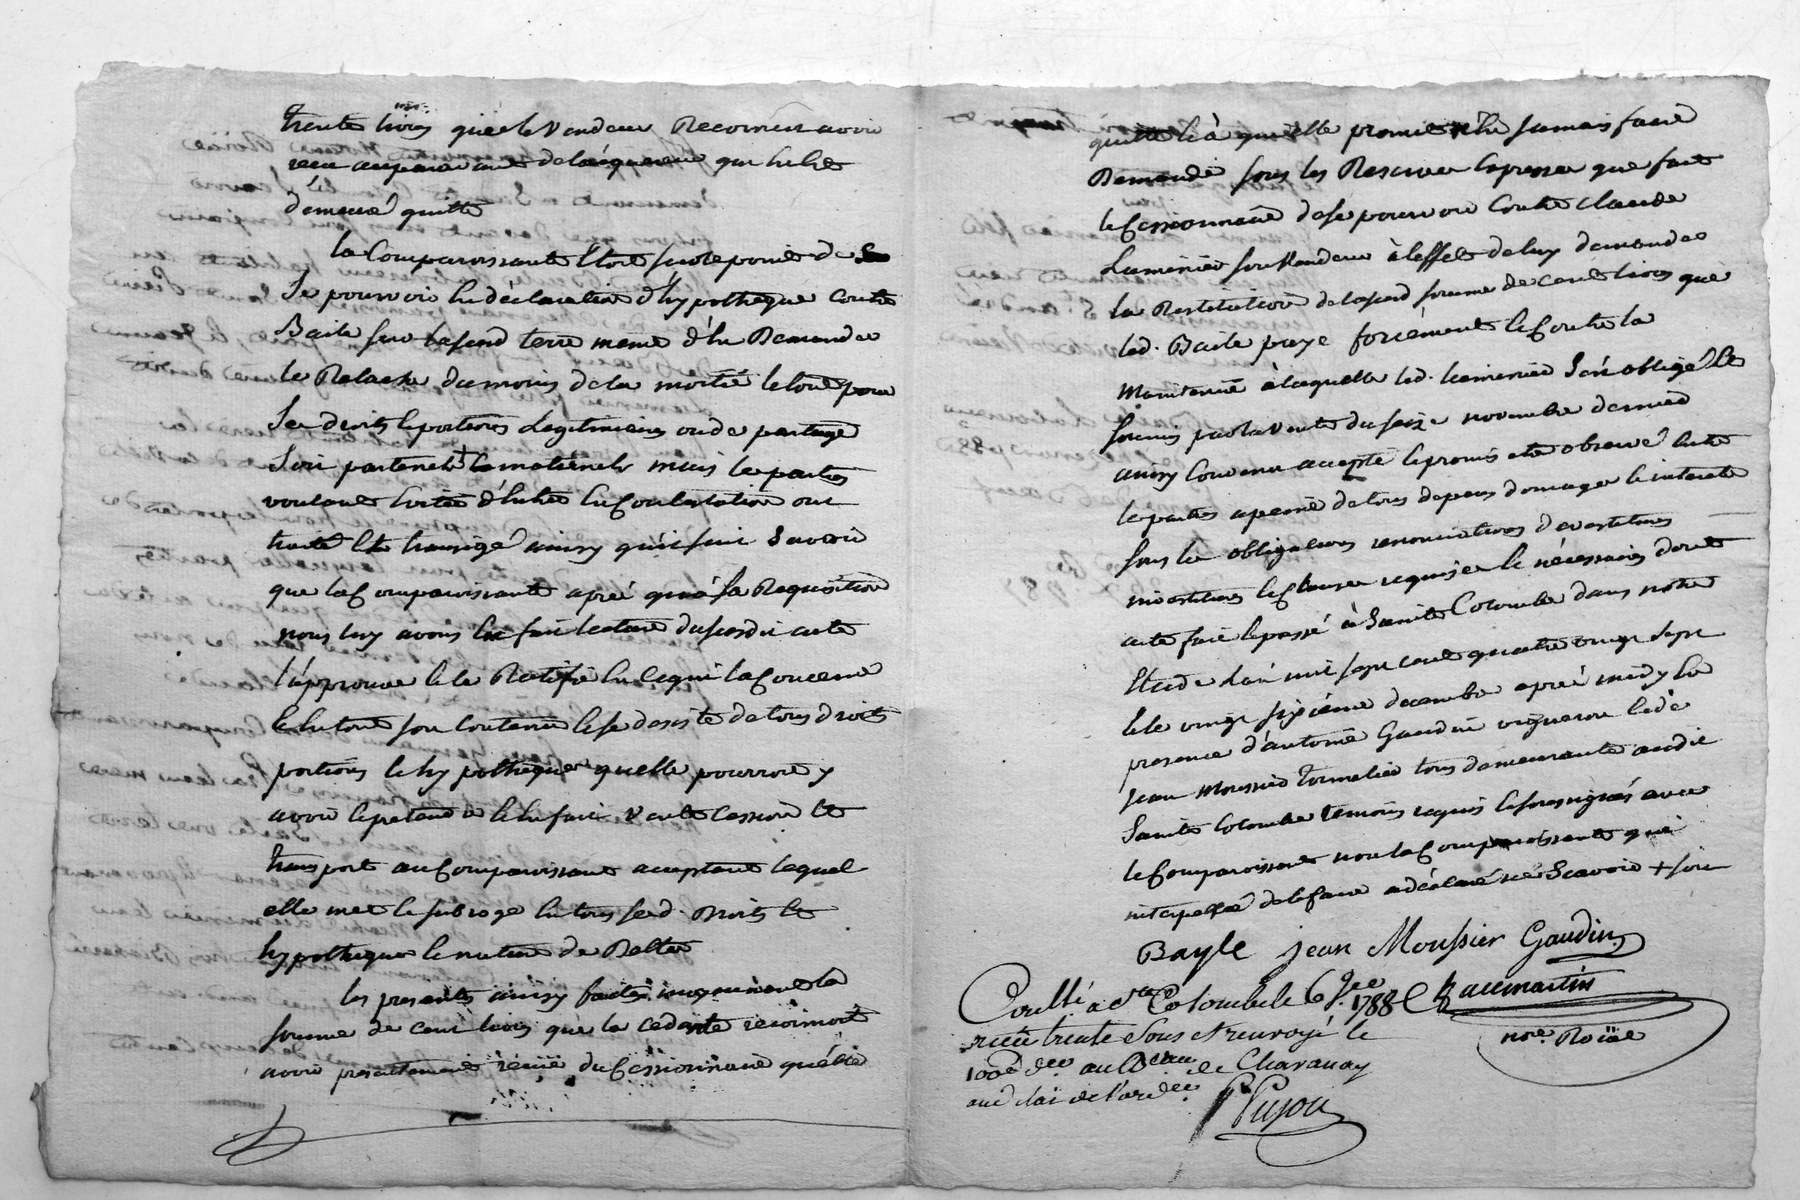 trente livres que le vendeur Reconnut avoir
reçu auparavant de l'acquereur qui en est
demeuré quitte
la Comparoissante Etoit sur le point de
Se pourvoir en déclaration d'hypotheque contre
Baile sur lasusd terre meme d'en Demander
le Relache du moins de la moitié le tout pour
Ses droits et portions Legitimaires ou de partage
Soit paternels et maternels mais les parties
voulant Eviter d'entrer en Contestation ont
traité Et transigé ainsy qu'il suit Savoir
que la Comparoissante aprés qu'à sa Requisition
nous luy avons fait lecture dususdit acte
l'approuve et le Ratifie en ce qui la Concerne
et en tout son contenu et se desiste de tous droits
portions et hypotheques qu'elle pourroit y
avoir et pretendre et en fait vente cession Et
transport au Comparoissant acceptant lequel
elle met et subroge en tous sesd. Droits Et
hypotheques et en etat de
les presentes ainsy faites moyennant la
somme de cent livres que la cedante reconnoit
avoir presentement reçue du Cessionnaire qu'elle
quitte et à qui elle promet n'en jamais faire
Demande sous les Reserves Expresses que fait
le Cessionnaire de se pourvoir Contre Claude
Lumenier son Vendeur à l'effet de luy demander
la Restitution de lasusd somme de cent livres que
led. Baile paye forcément et Contre la
Maintenue à laquelle led. Lumenier S'est obligé Et
soumis par la vente du seize novembre dernier
ainsy Convenu accepté et promis etre observé Entre
les parties a peine de tous depens domages et interets
sous les obligations renonciations devestitures
investitures et clauses requises et nécessaires dont
acte fait et passé à Sainte Colombe dans notre
Etude L'an mil sept cent quatre vingt sept
et le vingt sixieme decembre aprés midy En
presence d'antoine Gaudin vigneron et de
Jean Moussier tonnelier tous demeurants audit
Sainte Colombe temoins requis et soussignés avec
le Comparoissant non la Comparoissante qui
interpellée de le faire a déclaré ne Scavoir + soit
Bayle jean Moussier Gaudin
Contllé a Ste Colombe le 6 Jer 1788
reçu trente Sous et renvoyé le
100e der au Beau de Chavanay
Pujou
nore Roïal